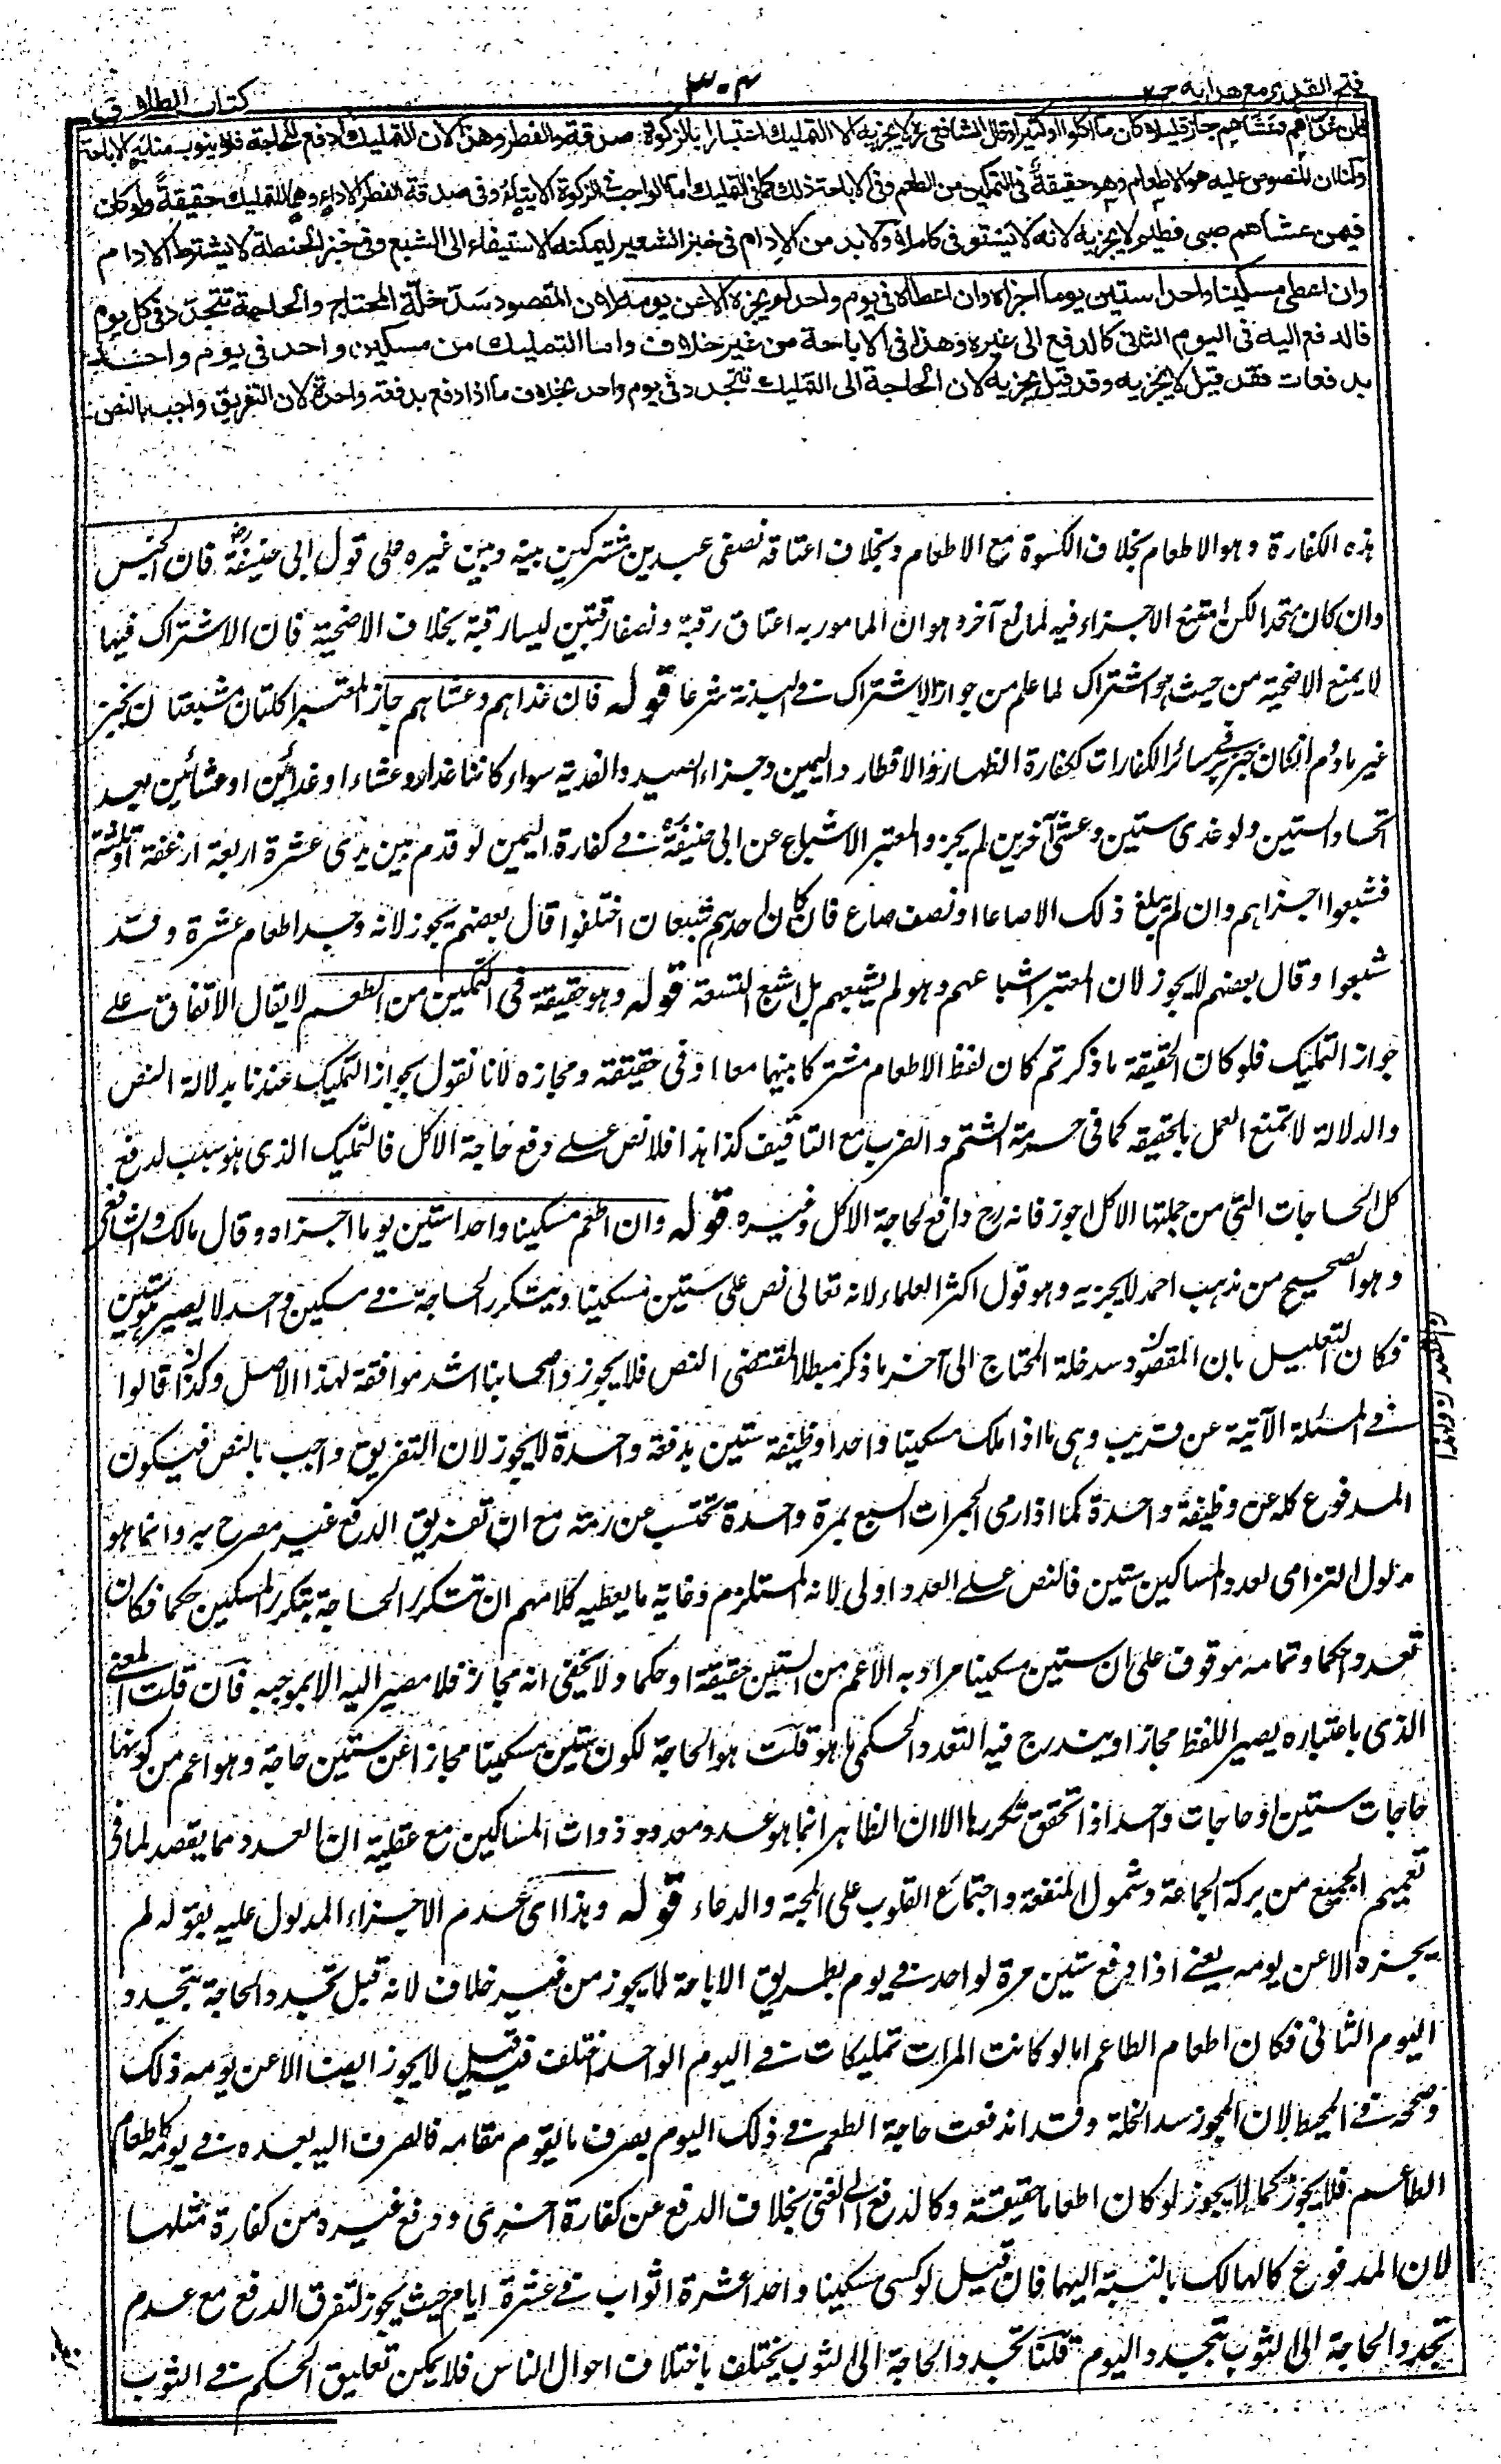 فتح القدير مع هدايه ج ٢
٣٠٤
كتاب الطلاق
فان غداهم وعشاهم جاز قليلا كان ما اكلوا او كثيرا وقال الشافعي رح لا يجزيه الا التمليك اعتبارا بالزكوة وصدقة الفطر وهذا لان التمليك ادفع للحاجة فلا ينوب منابه الاباحة
ولنا ان المنصوص عليه هو الاطعام وهو حقيقة في التمكين من الطعم وفي الاباحة ذلك كما في التمليك اما الواجب في الزكوة الايتاء وفي صدقة الفطر الاداء وهما للتمليك حقيقة ولو كان
فيمن عشاهم صبي فطيم لا يجزيه لانه لا يستوفي كاملا ولا بد من الادام في خبز الشعير ليمكنه الاستيفاء الى الشبع وفي خبز الحنطة لا يشترط الادام
وان اعطى مسكينا واحدا ستين يوما اجزاه وان اعطاه في يوم واحد لم يجزه الا عن يومه لان المقصود سد خلة المحتاج والحاجة تتجدد في كل يوم
فالدفع اليه في اليوم الثاني كالدفع الى غيره وهذا في الاباحة من غير خلاف واما التمليك من مسكين واحد في يوم واحد
بدفعات فقد قيل لا يجزيه وقد قيل يجزيه لان الحاجة الى التمليك تتجدد في يوم واحد بخلاف ما اذا دفع بدفعة واحدة لان التفريق واجب بالنص
هذه الكفارة وهو الاطعام بخلاف الكسوة مع الاطعام وبخلاف اعتاقه نصفي عبدين مشتركين بينه وبين غيره على قول ابي حنيفة رض فان الجنس
وان كان متحدا لكن امتنع الاجزاء فيه لمانع آخر وهو ان المامور به اعتاق رقبة ونصفا رقبتين ليسا رقبة بخلاف الاضحية فان الاشتراك فيها
لا يمنع الاضحية من حيث هو اشتراك لما علم من جواز الاشتراك في البدنة شرعا قوله فان غداهم وعشاهم جاز المعتبر اكلتان مشبعتان بخبز
غير مادوم ان كان خبز بر في سائر الكفارات ككفارة الظهار والافطار واليمين وجزاء الصيد والفدية سواء كانتا غداء وعشاء او غدائين او عشائين بعد
اتحاد الستين ولو غدى ستين وعشى آخرين لم يجز والمعتبر الاشباع عن ابي حنيفة رح في كفارة اليمين لو قدم بين يدي عشرة اربعة ارغفة او ثلثة
فشبعوا اجزاهم وان لم تبلغ ذلك الا صاعا او نصف صاع فان كان احدهم شبعان اختلفوا قال بعضهم يجوز لانه وجد اطعام عشرة وقد
شبعوا وقال بعضهم لا يجوز لان المعتبر اشباعهم وهو لم يشبعهم بل اشبع التسعة قوله وهو حقيقة في التمكين من الطعم لا يقال الاتفاق على
جواز التمليك فلو كان الحقيقة ما ذكرتم كان لفظ الاطعام مشتركا بينهما معا او في حقيقته ومجازه لانا نقول بجواز التمليك عندنا بدلالة النص
والدلالة لا تمنع العمل بالحقيقة كما في حرمة الشتم والضرب مع التافيف كذا هذا فلا نص على دفع حاجة الاكل فالتمليك الذي هو سبب لدفع
كل الحاجات التي من جملتها الاكل اجوز فانه رح دافع لحاجة الاكل وغيره قوله وان اطعم مسكينا واحدا ستين يوما اجزاه وقال مالك والشافعي
وهو الصحيح من مذهب احمد لا يجزيه وهو قول اكثر العلماء لانه تعالى نص على ستين مسكينا وبتكرر الحاجة في مسكين واحد لا يصير هو ستين
فكان التعليل بان المقصود سد خلة المحتاج الى آخر ما ذكر مبطلا لمقتضى النص فلا يجوز واصحابنا اشد موافقة لهذا الاصل ولذا قالوا
في المسئلة الآتية عن قريب وهي ما اذا ملك مسكينا واحدا وظيفة ستين بدفعة واحدة لا يجوز لان التفريق واجب بالنص فيكون
المدفوع كله عن وظيفة واحدة كما اذا رمى الجمرات السبع بمرة واحدة تحتسب عن رمية مع ان تفريق الدفع غير مصرح به وانما هو
مدلول التزامي لعدد المساكين ستين فالنص على العدد اولى لانه المستلزم وغاية ما يعطيه كلامهم ان تتكرر الحاجة يتكرر المسكين حكما فكان
تعددا حكما وتمامه موقوف على ان ستين مسكينا مراد به الاعم من الستين حقيقة او حكما ولا يخفى انه مجاز فلا مصير اليه الا بموجبه فان قلت المعنى
الذي باعتباره يصير اللفظ مجازا ويندرج فيه التعدد الحكمي ما هو قلت هو الحاجة لكون ستين مسكينا مجازا عن ستين حاجة وهو اعم من كونها
حاجات ستين او حاجات واحد اذا تحقق تكررها الا ان الظاهر انما هو عدد معدود ذوات المساكين مع عقلية ان العدد مما يقصد لما في
تعميم الجميع من بركة الجماعة وشمول المنفعة واجتماع القلوب على المحبة والدعاء قوله وهذا اي عدم الاجزاء المدلول عليه بقوله لم
يجزه الا عن يومه يعني اذا دفع ستين مرة لواحد في يوم بطريق الاباحة لا يجوز من غير خلاف لانه قبل تجدد الحاجة بتجدد
اليوم الثاني فكان اطعام الطاعم اما لو كانت المرات تمليكات في اليوم الواحد اختلف فيه قيل لا يجوز ايضا الا عن يومه ذلك
وصححه في المحيط لان المجوز سد الخلة وقد اندفعت حاجة الطعم في ذلك اليوم بصرف ما يقوم مقامه فالصرف اليه بعده في يومه كاطعام
الطاعم فلا يجوز كما لا يجوز لو كان اطعاما حقيقة وكالدفع الى الغني بخلاف الدفع عن كفارة اخرى ودفع غيره من كفارة مثلها
لان المدفوع كالهالك بالنسبة اليهما فان قيل لو كسى مسكينا واحدا عشرة اثواب في عشرة ايام حيث يجوز لتفرق الدفع مع عدم
تجدد الحاجة الى الثوب بتجدد اليوم قلنا تجدد الحاجة الى الثوب يختلف باختلاف احوال الناس فلا يمكن تعليق الحكم في الثوب